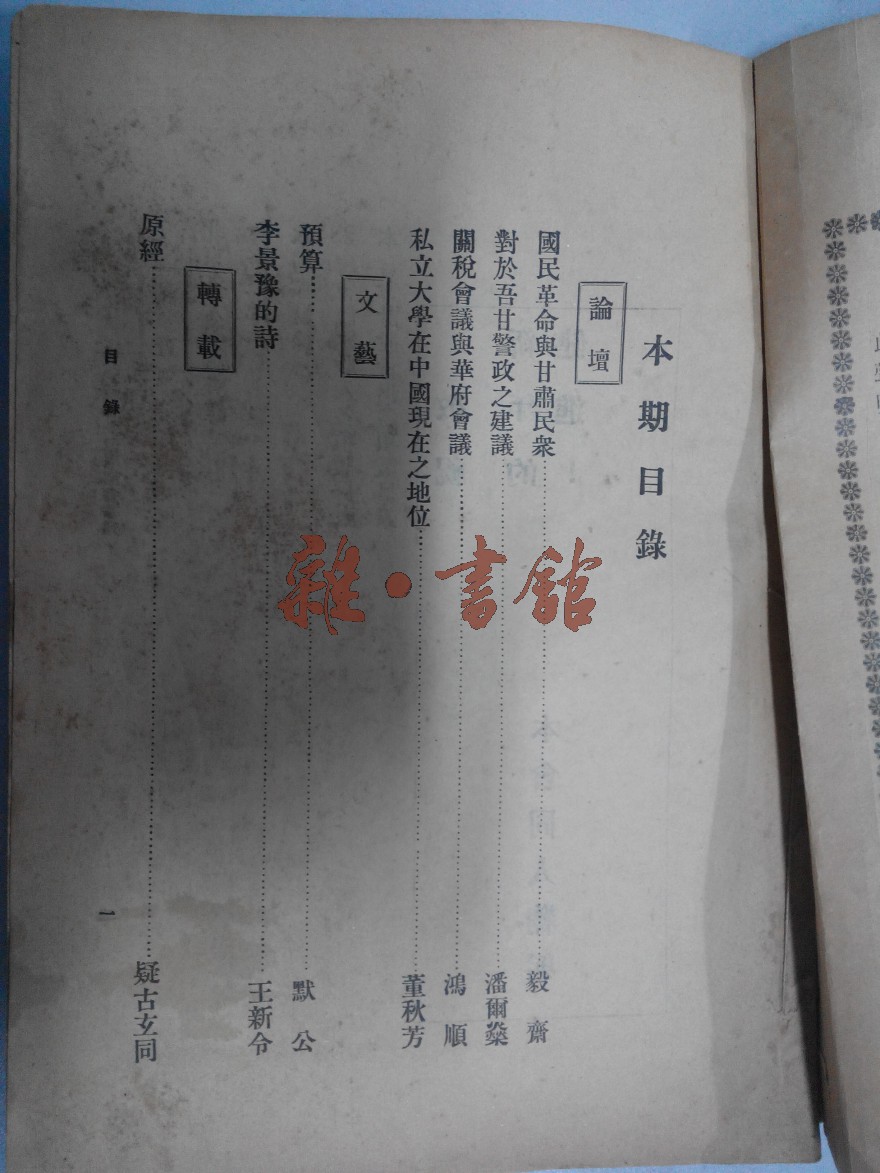 本期目錄
論壇
國民革命與甘肅民衆……毅齋
對於吾甘警政之建議……潘爾燊
關稅會議與華府會議……鴻順
私立大學在中國現在之地位……董秋芳
文藝
預算……默公
李景豫的詩……王新令
轉載
原經……疑古玄同
目錄
一
雜·書館